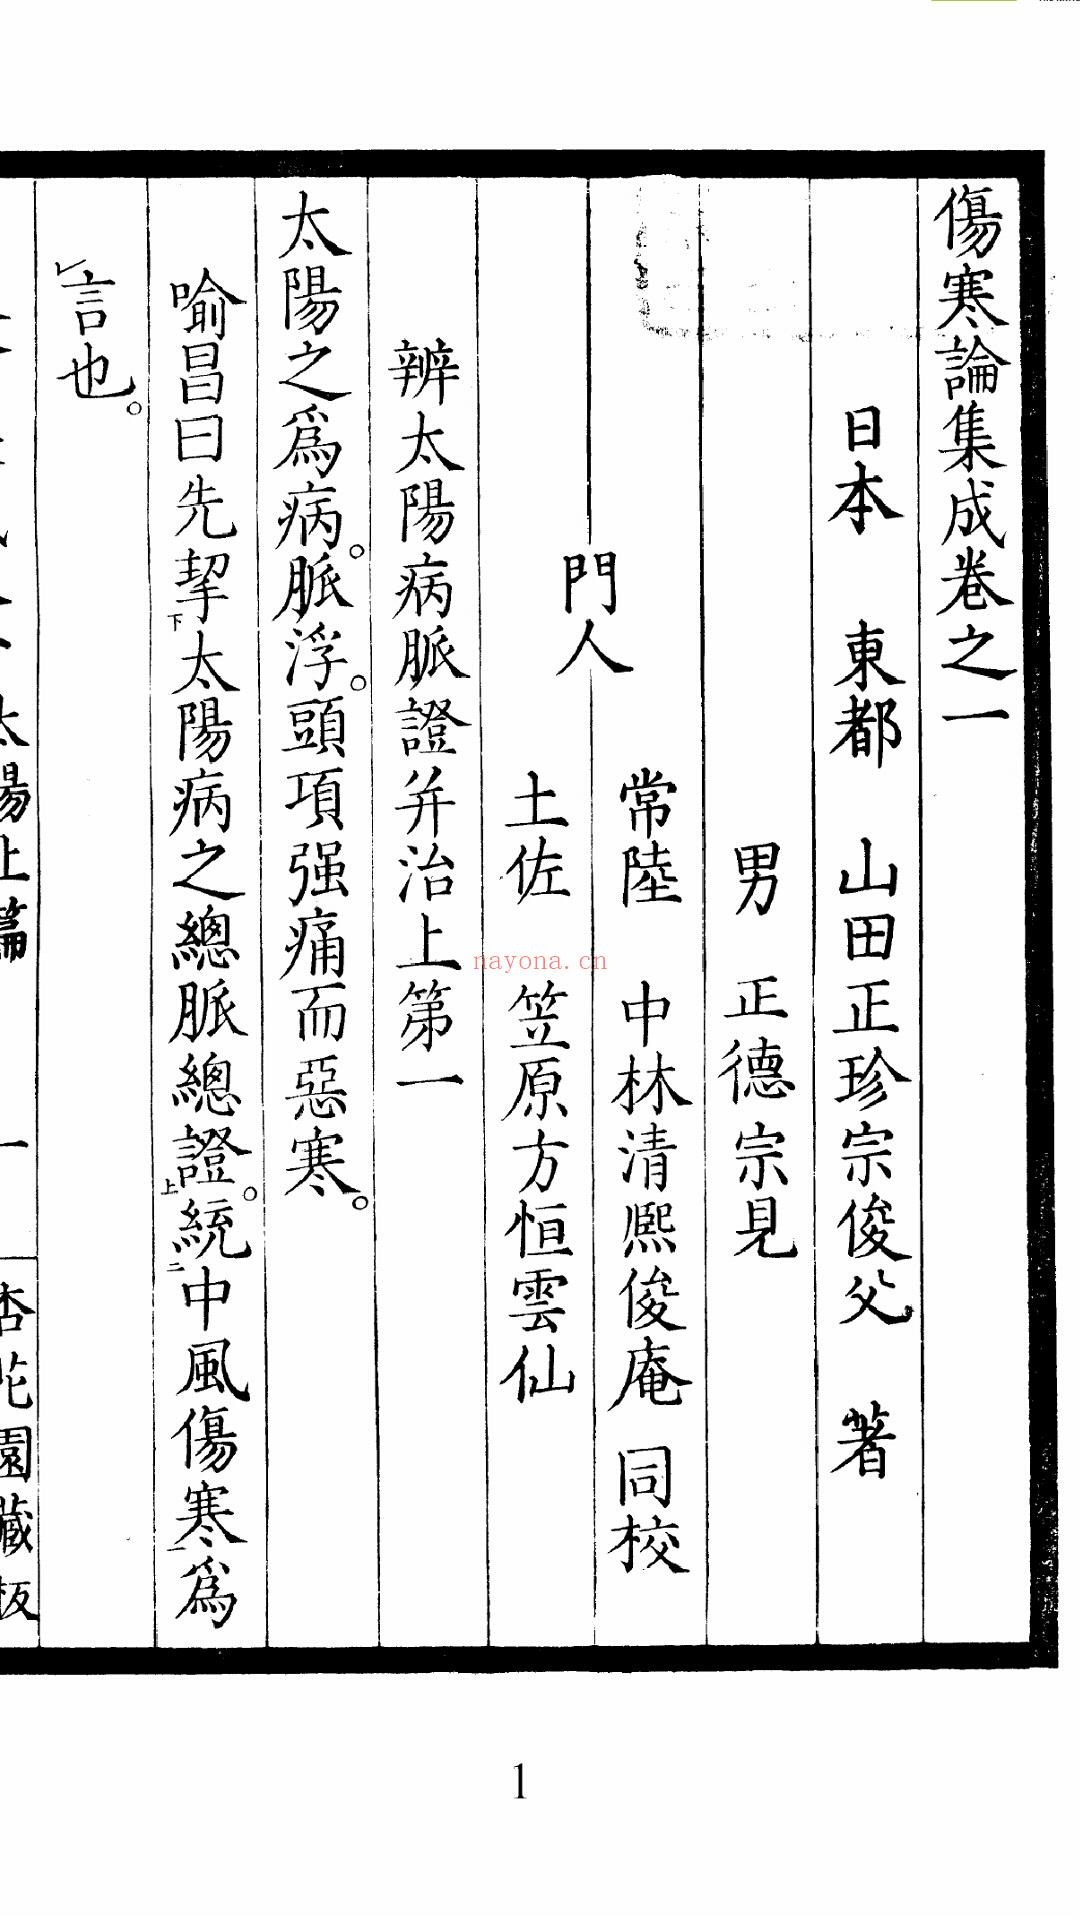 傷寒論集成卷之一
日本 東都 山田正珍宗俊父 著
男 正德宗見
門人
常陸 中林清熙俊庵 同校
土佐 笠原方恒雲仙
辨太陽病脈證并治上第一
太陽之爲病。脈浮。頭項强痛而惡寒。
喻昌曰先挈下太陽病之總脈總證上。統二中風傷寒一爲
レ言也。
太陽上篇 一 杏花園藏板
nayona.cn
1